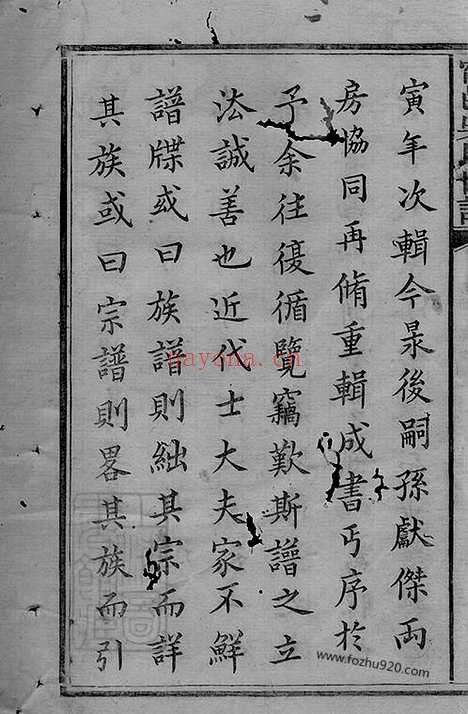 寅年次輯今晜後嗣孫獻傑両
房協同再脩重輯成書丐序於
予余往復循覽竊歎斯譜之立
法誠善也近代士大夫家不鮮
譜牒或曰族譜則絀其宗而詳
其族或曰宗譜則畧其族而引
nayona.cn
www.fozhu920.com